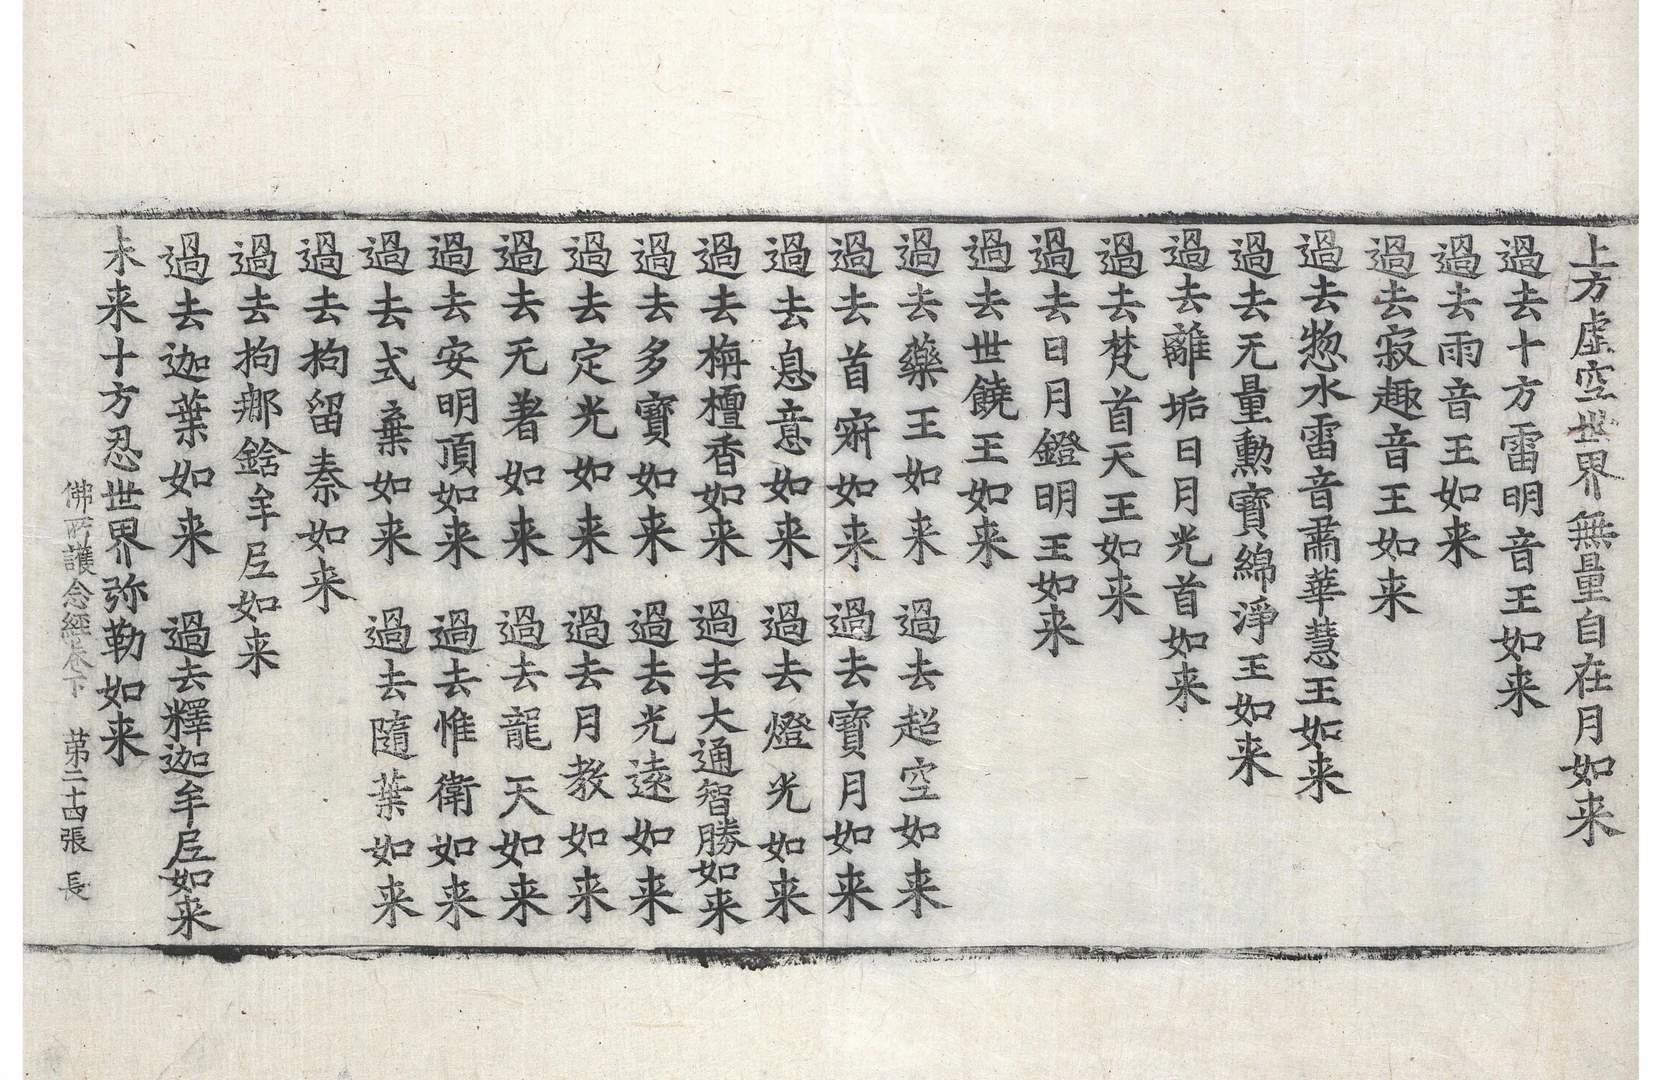 上方虛空世界無量自在月如来
過去十方雷明音王如来
過去雨音王如来
過去寂趣音王如来
過去惣水雷音肅華慧王如来
過去无量勲寶綿淨王如来
過去離垢日月光首如来
過去梵首天王如来
過去日月鐙明王如来
過去世饒王如来
過去藥王如来 過去超空如来
過去首寂如来 過去寶月如来
過去息意如来 過去燈光如来
過去栴檀香如来 過去大通智勝如来
過去多寶如来 過去光遠如来
過去定光如来 過去月教如来
過去无著如来 過去龍天如来
過去安明頂如来 過去惟衛如来
過去式棄如来 過去隨葉如来
過去拘留秦如来
過去拘那鋡牟尼如来
過去迦葉如来 過去釋迦牟尼如来
未来十方忍世界弥勒如来
佛所護念經卷下 第二十四張 長